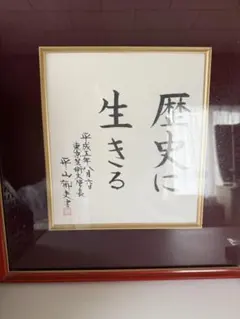 歴史に
生きる
平成五年八月六日
東京芸術大学長
平山郁夫書